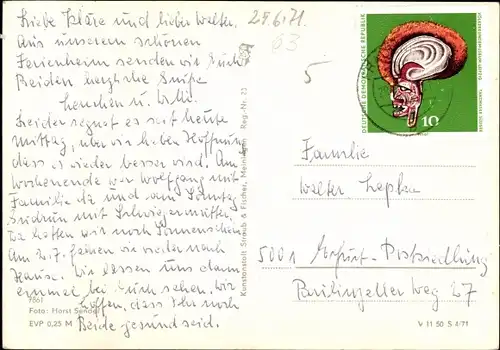 Liebe Kläre und lieber Walter.
29.6.71.
Aus unserem schönen
Ferienheim senden wir Euch
Beiden herzliche Grüße
u. Willi.
Leider regnet es seit heute
mittag, aber wir haben Hoffnung
dass es wieder besser wird. Am
Wochenende war Wolfgang mit
Familie da und am Sonntag
Gudrun mit Schwiegermutter.
Da hatten wir noch Sonnenschein
Am 2.7. fahren wir wieder nach
Hause. Wir lassen uns dann
einmal bei Euch sehen. Wir
hoffen, dass Ihr noch
Beide gesund seid.
7661
Foto: Horst Sender
EVP 0,25 M
Kunstanstalt Straub & Fischer, Meiningen Reg.-Nr. 23
83
5
DEUTSCHE DEMOKRATISCHE REPUBLIK
10
Familie
Walter
5001 Erfurt-Postsiedlung
Paulinzeller Weg 27
V 11 50 S 4/71